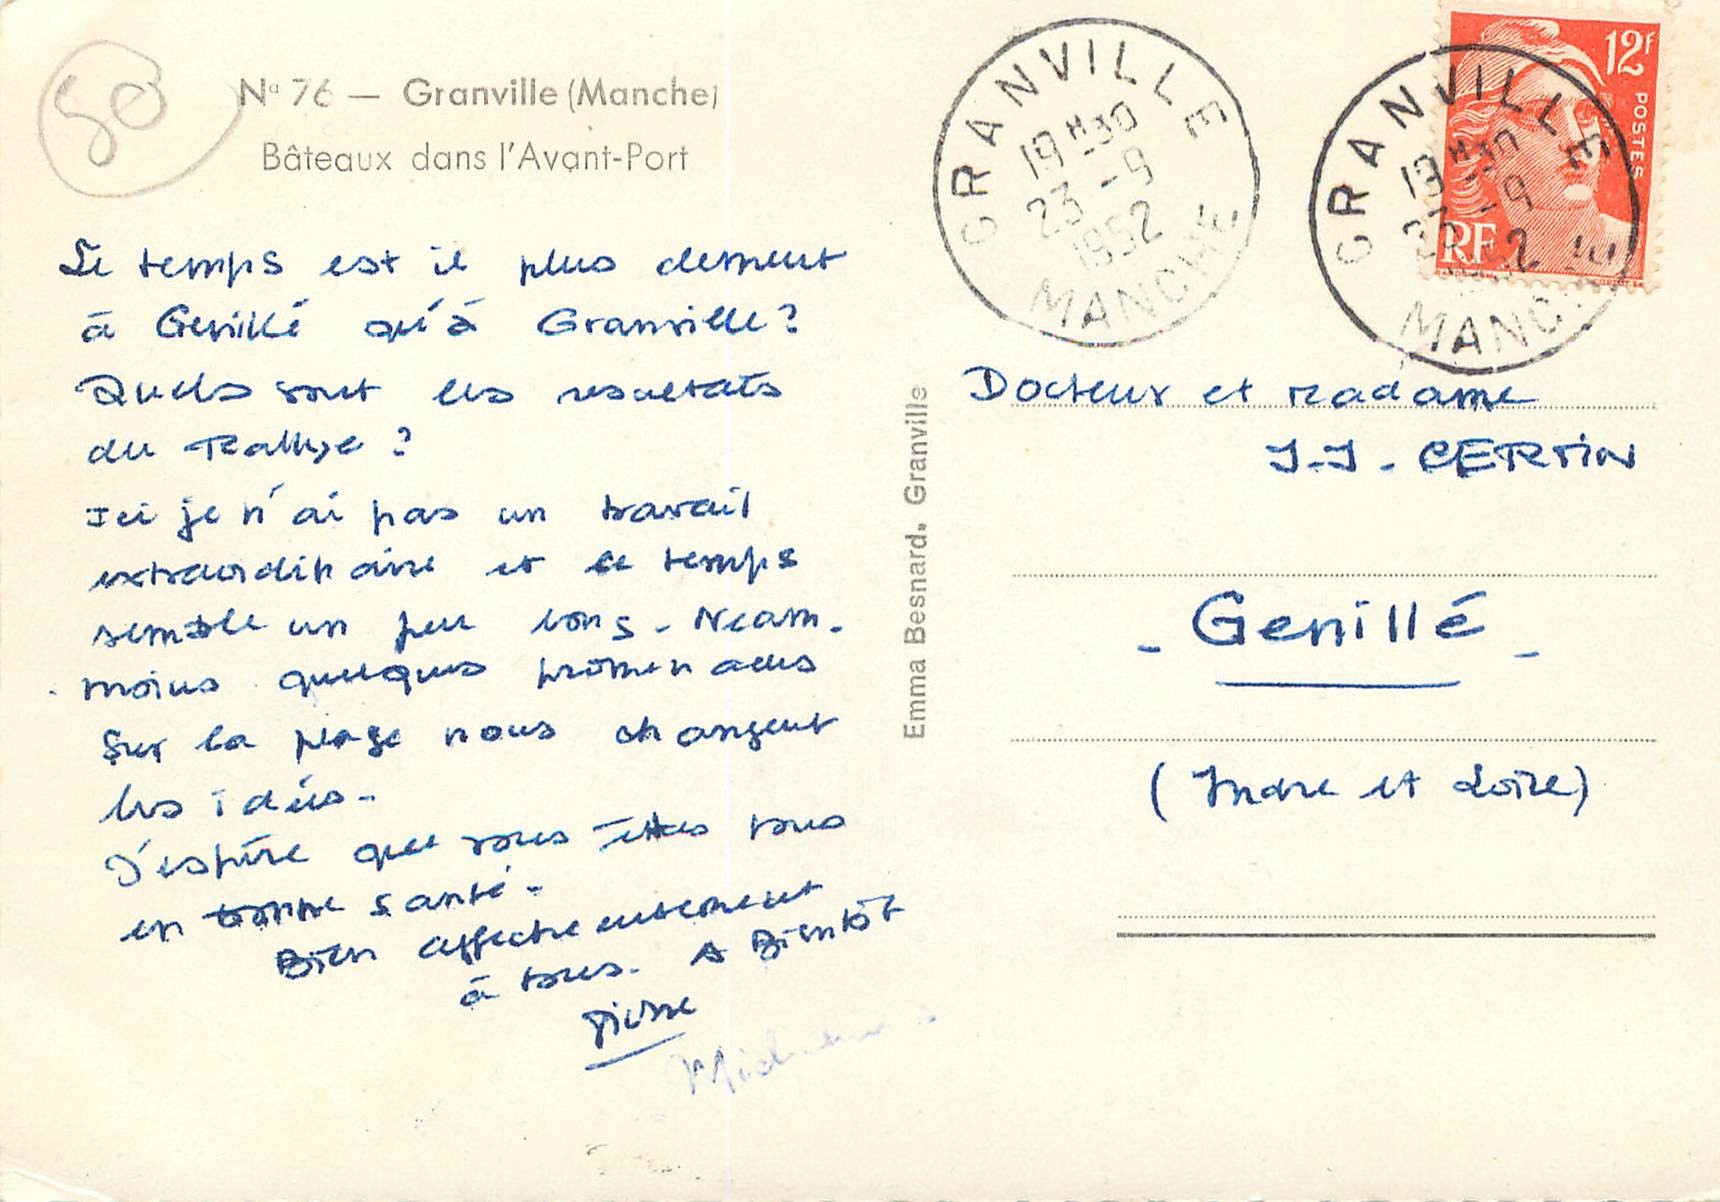 50
No 76 — Granville (Manche)
Bâteaux dans l'Avant-Port
Le temps est il plus clement
à Genillé qu'à Granville ?
Quels sont les resultats
du Rallye ?
Ici je n'ai pas un travail
extraordinaire et le temps
semble un peu long - Néan-
moins quelques promenades
sur la plage nous changent
les idées -
J'espère que vous êtes tous
en bonne santé -
Bien affectueusement
à tous - A Bientôt
Pierre
Emma Besnard, Granville
GRANVILLE
19 H 30
23 - 9
1952
MANCHE
GRANVILLE
19 H 30
23 - 9
1952
MANCHE
12f
POSTES
RF
Docteur et Madame
J-J - CERTIN
- Genillé -
(Indre et Loire)